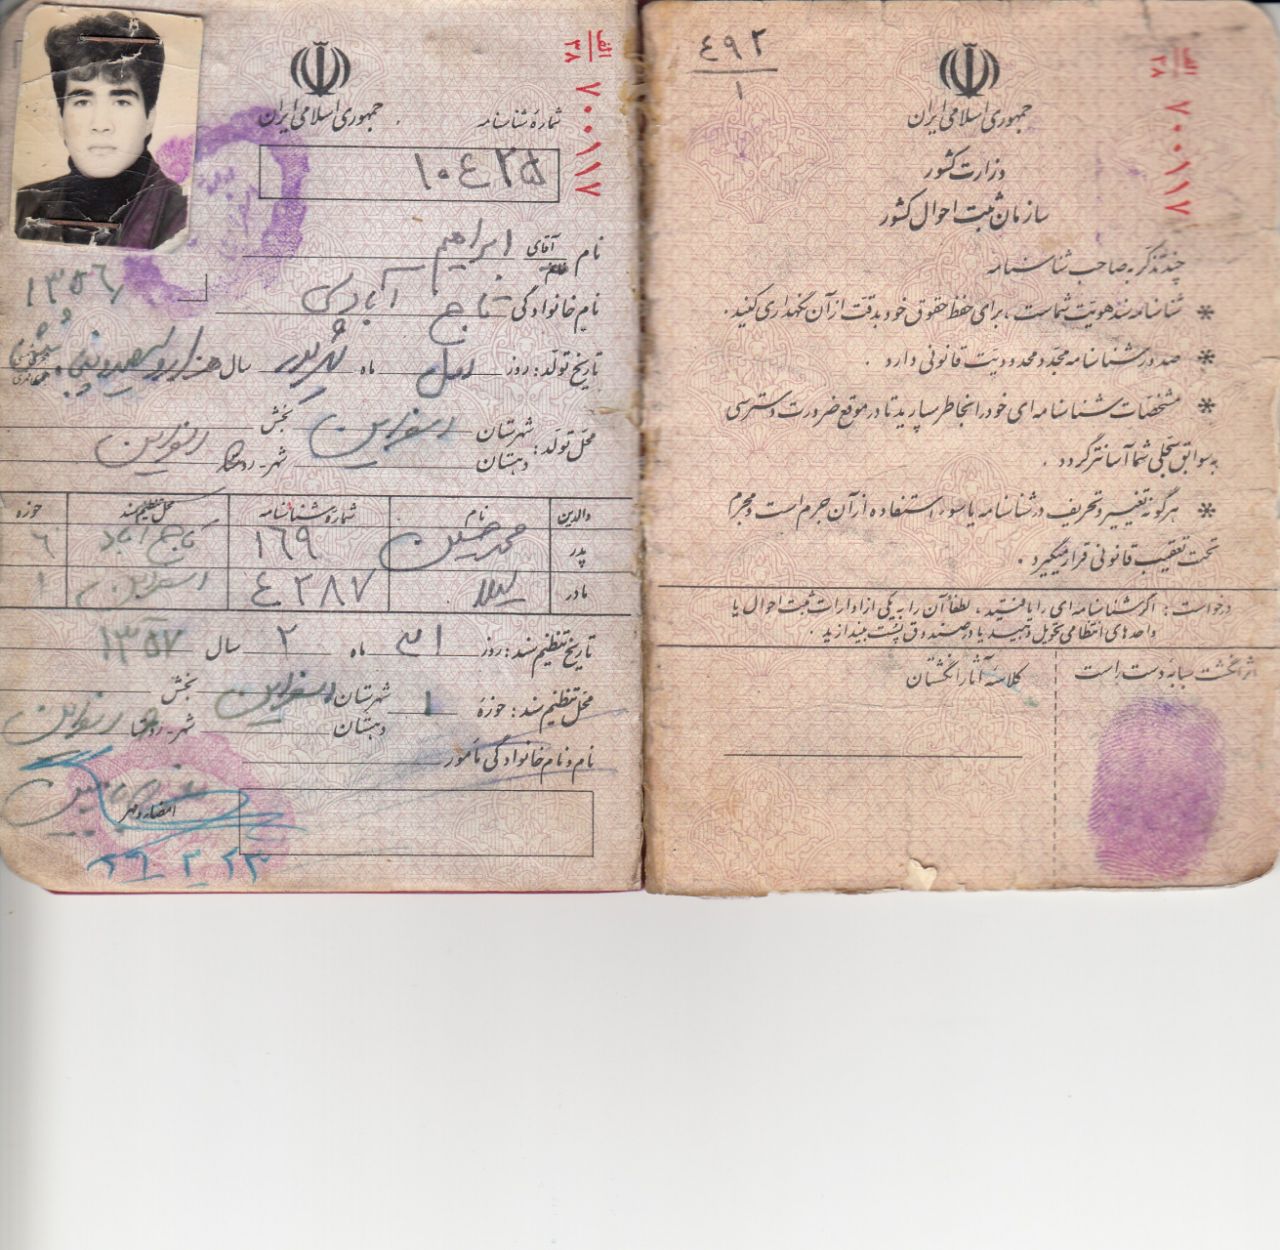 الف
۳۸
۷۰۰۱۱۷
۴۹۲
۱
جمهوری اسلامی ایران
وزارت کشور
سازمان ثبت احوال کشور
چند تذکر به صاحب شناسنامه
* شناسنامه سند هویت شماست ، برای حفظ حقوق خود بدقت از آن نگهداری کنید .
* صدور شناسنامه مجدد محدودیت قانونی دارد .
* مشخصات شناسنامه ای خود را بخاطر بسپارید تا در موقع ضرورت دسترسی
به سوابق سجلی شما آسانتر گردد .
* هرگونه تغییر و تحریف در شناسنامه یا سوء استفاده از آن جرم است و مجرم
تحت تعقیب قانونی قرار میگیرد .
درخواست : اگر شناسنامه ای را یافتید ، لطفاً آن را به یکی از ادارات ثبت احوال یا
واحدهای انتظامی تحویل دهید یا در صندوق پست بیندازید .
اثر انگشت سبابه دست راست
کلاسه آثار انگشتان
الف
۳۸
۷۰۰۱۱۷
جمهوری اسلامی ایران
شماره شناسنامه
۱۰۴۲۵
نام آقای ابراهیم
نام خانوادگی تاج آبادی
۱۳۵۶
تاریخ تولد : روز اول ماه شهریور سال هزار و سیصد و پنجاه و شش شمسی
محل تولد : شهرستان اسفراین بخش
دهستان شهر - روستا اسفراین
والدین نام شماره شناسنامه محل تنظیم سند حوزه
پدر محمدحسین ۱۶۹ تاج آباد ۶
مادر لیلا ۴۲۸۷ اسفراین ۱
تاریخ تنظیم سند : روز ماه ۲ سال ۱۳۵۷
محل تنظیم سند : حوزه ۱ شهرستان اسفراین بخش
دهستان شهر - روستا اسفراین
نام و نام خانوادگی مامور
امضاء و مهر